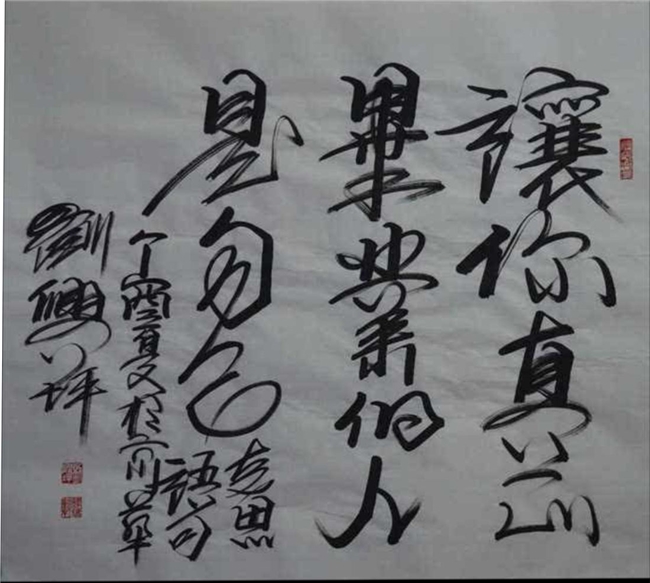 讓你真正
畢業的人
是自己
克思
語句
丁酉夏文於京華
劉興坪